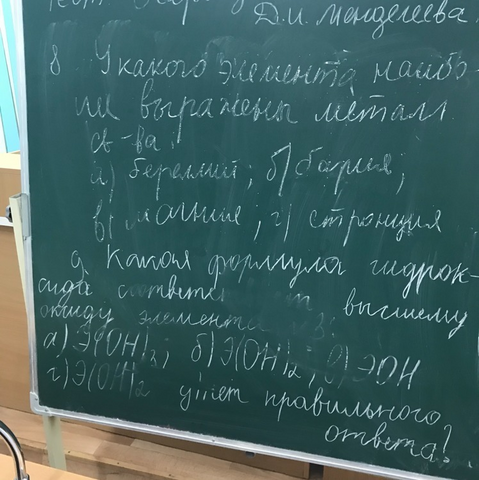 Д.И. Менделеева.
8 У какого элемента наибо-
лее выражены металл.
св-ва:
а) бериллий; б) бария;
в) магние; г) стронция
9. Какая формула гидрок-
сида соответствует высшему
оксиду элемента
а) Э(OH)3; б) Э(OH)2; в) ЭOH
г) Э(OH)2 у) нет правильного
ответа?